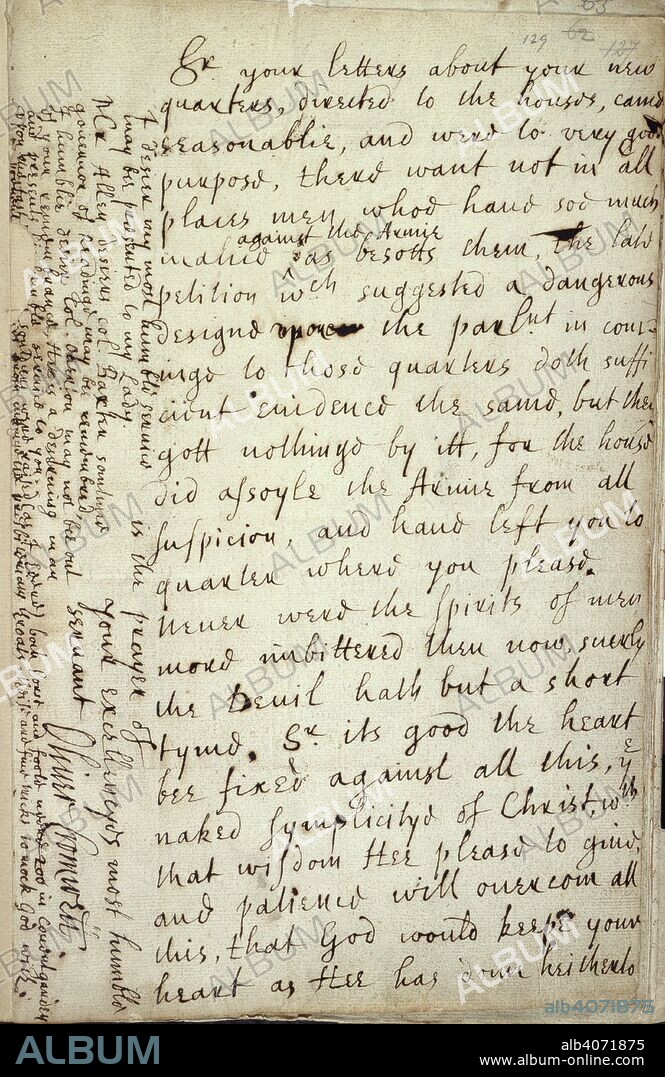 129 62 127
Sr your letters about your new
quarters, directed to the houses, came
seasonablie, and were to very good
purpose, there want not in all
places men whoe have soe much
against the Armie
malice as besotts them, the late
petition wch suggested a dangerous
designe upon the parlnt in com-
inge to those quarters doth suffi
cient evidence the same, but they
gott nothinge by itt, for the houses
did assoyle the Armie from all
suspicion, and have left you to
quarter where you please.
Never were the spirits of men
more imbittered then now, suerly
the Devil hath but a short
tyme. Sr its good the heart
bee fixed against all this, ye
naked symplicitye of Christ, wth
that wisdom Hee please to give,
and patience will overcom all
this, that God would keepe your
heart as Hee has donn heitherto
is the prayer of
Your Excellencyes most humble
servant
Oliver Cromwell
I desier my most humble service
may be presented to my Lady
Adr Allen desires Col. Baxter sometimes
governor of Readinge may be remembred,
I humblie desier Col. Overton may not be out
of your remembrance, Hee is a deservinge man
and presents his humble service to you
ALBUM
alb4071875
ALBUM
alb4071875
www.album-online.com